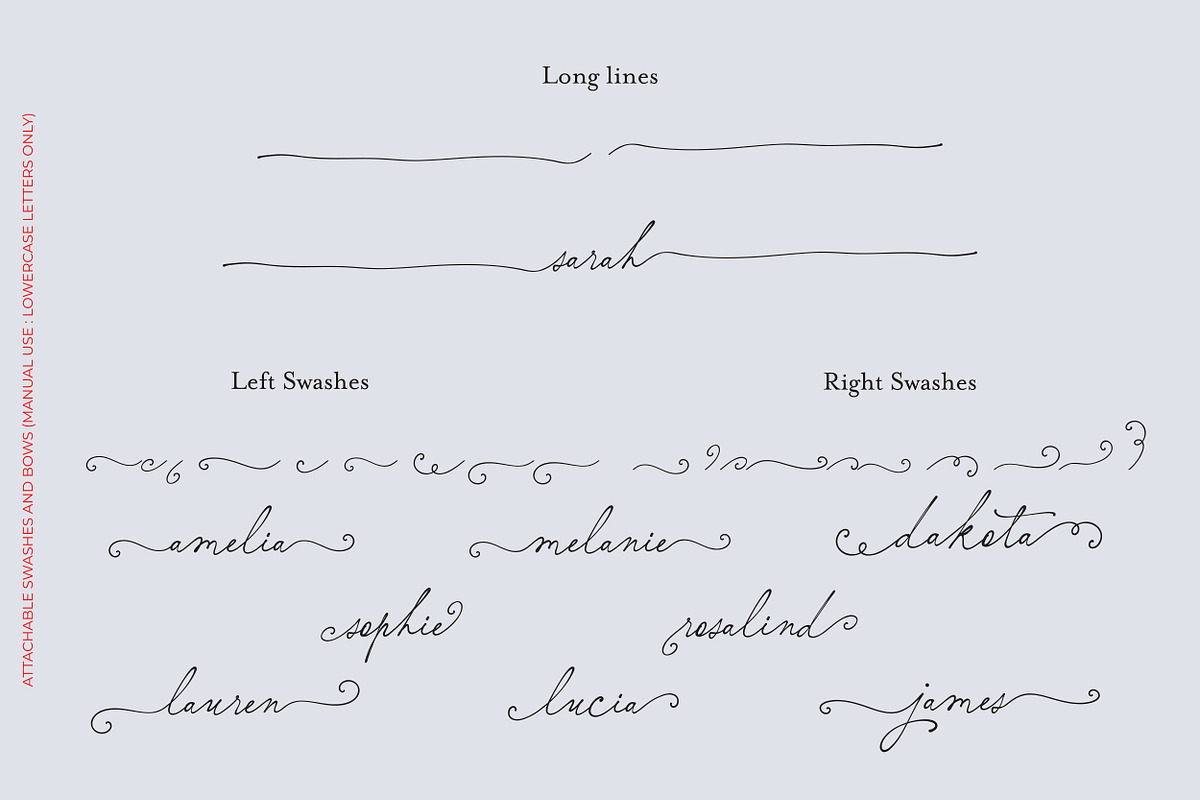 ATTACHABLE SWASHES AND BOWS (MANUAL USE : LOWERCASE LETTERS ONLY)
Long lines
sarah
Left Swashes
Right Swashes
amelia
melanie
dakota
sophie
rosalind
lauren
lucia
james